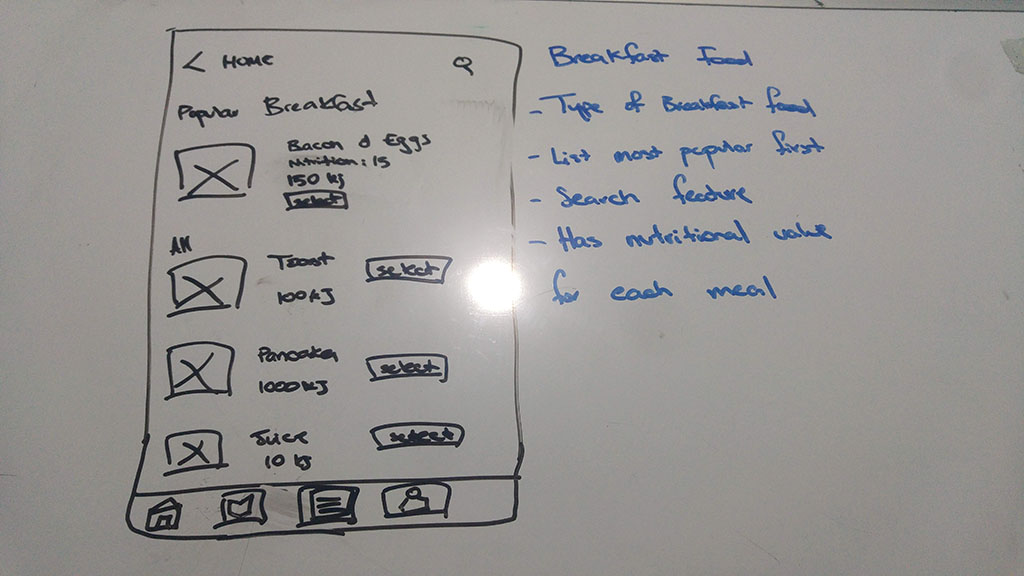 < HOME
Popular Breakfast
Bacon & Eggs
Nutrition: 15
150 kj
select
All
Toast
select
100 kJ
Pancakes
select
1000 kJ
Juice
select
10 kj
Breakfast Food
- Type of Breakfast food
- List most popular first
- Search feature
- Has nutritional value
for each meal